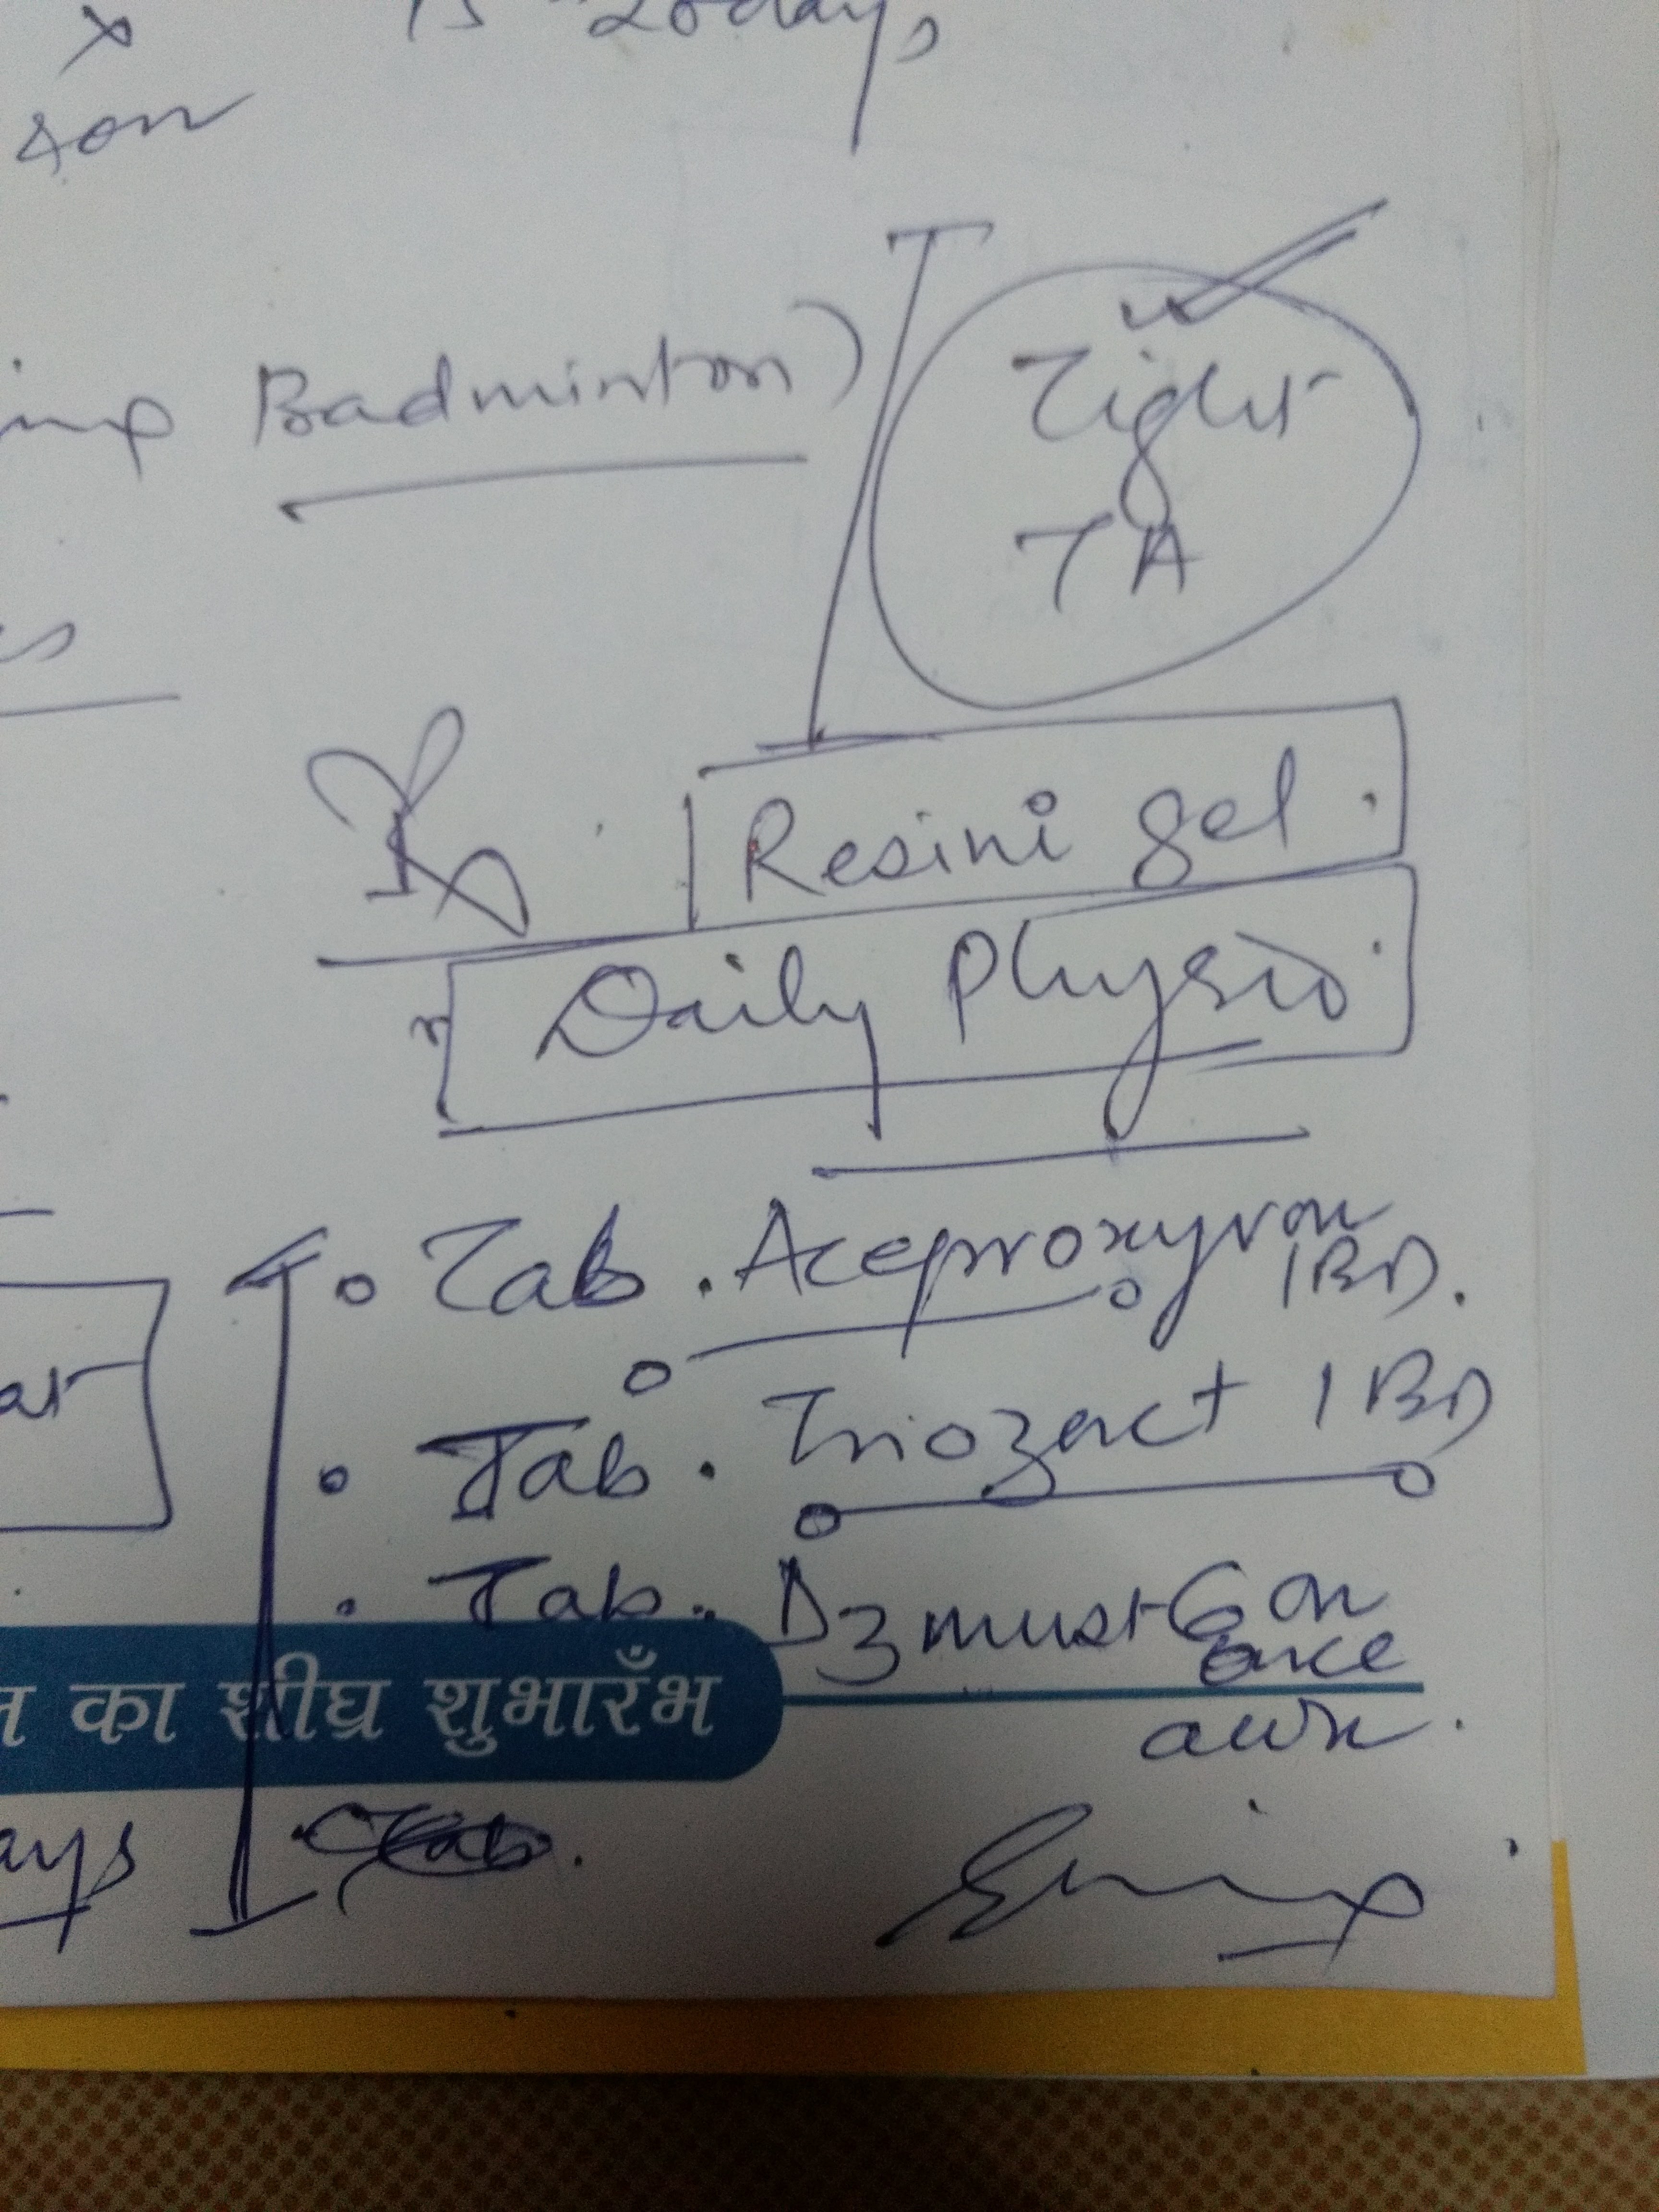 15-20 days
son
Badminton)
Tight
TA
Rx
Resini gel.
Daily Physio
Tab. Aceproxyvon
1 BD.
Tab. Triozact 1 BD
Tab. D3 must 60K
once
a wk.
का शीघ्र शुभारँभ
ays
Tab.